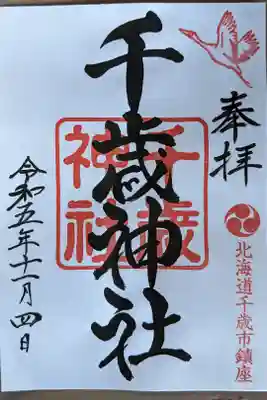 奉拝
北海道千歳市鎮座
千歳神社
千歳
神社
令和五年十一月四日